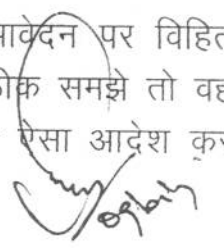 आवेदन पर विहित
ठीक समझे तो वह
ऐसा आदेश कर